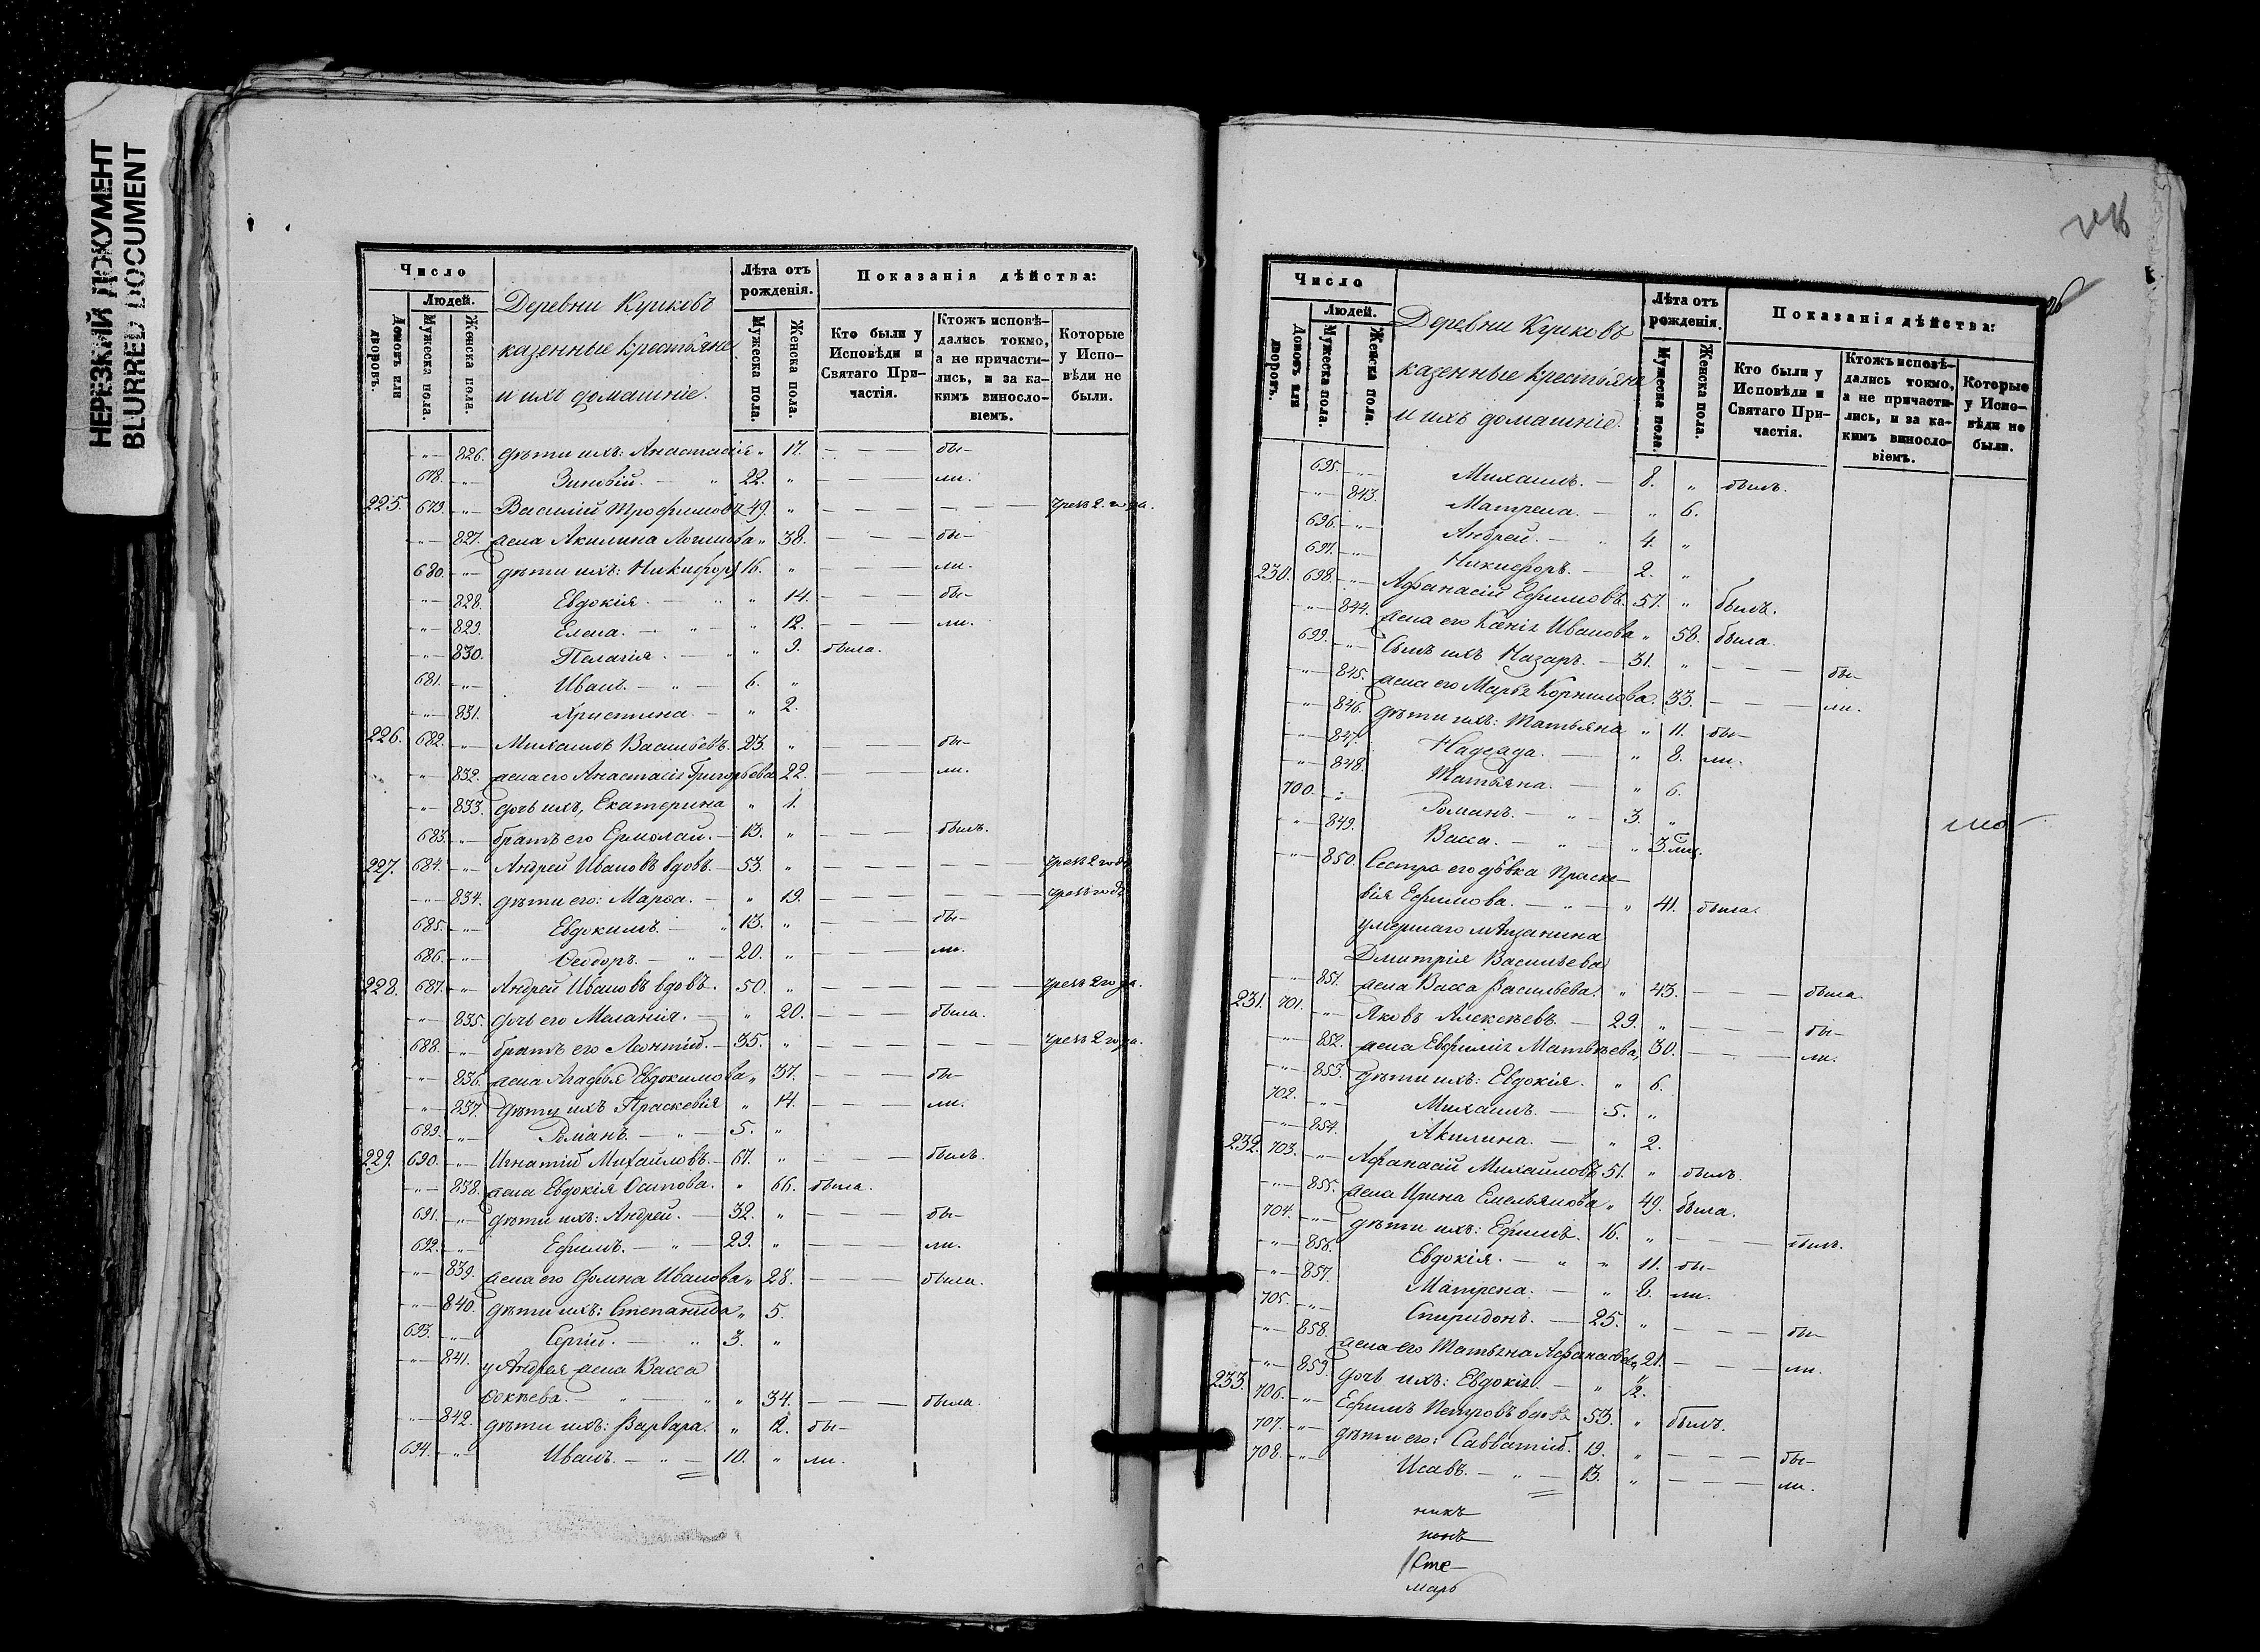 НЕРЕЗКИЙ ДОКУМЕНТ
BLURRED DOCUMENT
Число
Людей.
Домовъ или дворовъ.
Мужеска пола.
Женска пола.
Деревни Кушковъ
казенные крестьяне
и ихъ домашніе.
Лѣта отъ рожденія.
Мужеска пола.
Женска пола.
Показанія дѣйства:
Кто были у Исповѣди и Святаго Причастія.
Ктожъ исповѣдались токмо, а не причастились, и за какимъ винословіемъ.
Которые у Исповѣди не были.
-"- 826. дѣти ихъ: Анастасія " 17. — — — бы-
678. -"- Зиновій. — " 22. " — — — ли.
225. 679. -"- Василій Трофимовъ 49. " — — — — — чрезъ 2. года.
-"- 827. жена Акилина Логинова " 38. — — — бы-
680. -"- дѣти ихъ: Никифоръ 16. " — — — ли.
-"- 828. Евдокія. — " " 14. — — — бы-
-"- 829. Елена. — " — " 12. — — — ли.
-"- 830. Пелагія. — " " 9. была.
681. -"- Иванъ. — " — 6. "
-"- 831. Христина. — " 2.
226. 682. -"- Михаилъ Васильевъ. 23. " — — — бы-
-"- 832. жена его Анастасія Григорьева 22. — — — ли.
-"- 833. дочь ихъ, Екатерина " 1.
683. -"- братъ его Ермолай. — 13. " — — — былъ.
227. 684. -"- Андрей Ивановъ вдовъ. — 53. " — — — — — чрезъ 2 года
-"- 834. дѣти его: Марѳа. — " 19. — — — — — чрезъ годъ
685. -"- Евдокимъ. — " 13. " — — — бы-
686. -"- Ѳеодоръ. — " — 20. " — — — ли.
228. 687. -"- Андрей Ивановъ вдовъ. 50. " — — — — — чрезъ 2 года.
-"- 835. дочь его Меланія. — " 20. — — — была.
688. -"- братъ его Леонтій. — 35. " — — — — — чрезъ 2 года.
-"- 836. жена Агафья Евдокимова " 37. — — — бы-
-"- 837. дѣти ихъ Праскевія " 14. — — — ли.
689. -"- Романъ. — " — 5. "
229. 690. -"- Игнатій Михайловъ. — 67. " — — — былъ.
-"- 838. жена Евдокія Осипова. " 66. была.
691. -"- дѣти ихъ: Андрей. — 32. " — — — бы-
692. -"- Ефимъ. — " — 29. " — — — ли.
-"- 839. жена его Домна Иванова " 28. — — — была.
-"- 840. дѣти ихъ: Степанида " 5.
693. -"- Сергій. — " 3. "
-"- 841. у Андрея жена Васса
Фокѣева. — " — " " 34. — — — была.
-"- 842. дѣти ихъ: Варвара. " 12. бы-
694. -"- Иванъ. — " — 10. " ли.
Число
Людей.
Домовъ или дворовъ.
Мужеска пола.
Женска пола.
Деревни Кушковъ
казенные крестьяне
и ихъ домашніе.
Лѣта отъ рожденія.
Мужеска пола.
Женска пола.
Показанія дѣйства:
Кто были у Исповѣди и Святаго Причастія.
Ктожъ исповѣдались токмо, а не причастились, и за какимъ винословіемъ.
Которые у Исповѣди не были.
695. -"- Михаилъ. — 8. " былъ.
-"- 843. Матрена. — " 6.
696. -"- Андрей. — " 4. "
697. -"- Никифоръ. — 2. "
230. 698. -"- Афанасій Ефимовъ. 57. " былъ.
-"- 844. жена его Ксенія Иванова " 58. была.
699. -"- Сынъ ихъ Назаръ. — 31. " — — — бы-
-"- 845. жена его Марья Корнилова. 33. — — — ли.
-"- 846. дѣти ихъ: Татьяна " 11. бы-
-"- 847. Надежда. — " 8. ли.
-"- 848. Татьяна. — " 6.
700. -"- Романъ. — " — 3. "
-"- 849. Васса. — " — " 3. мѣс.
-"- 850. Сестра его дѣвка Праске-
вія Ефимова. — " — " 41. была.
умершаго мѣщанина
Дмитрія Васильева
-"- 851. жена Васса Васильева. " 43. — — — была.
231. 701. -"- Яковъ Алексѣевъ. — 29. " — — — бы-
-"- 852. жена Евфимія Матвѣева, 30. — — — ли.
-"- 853. дѣти ихъ: Евдокія. " 6.
702. -"- Михаилъ. — 5. "
-"- 854. Акилина. — " 2.
232. 703. -"- Афанасій Михайловъ 51. " былъ.
-"- 855. жена Ирина Емельянова " 49. была.
704. -"- дѣти ихъ: Ефимъ. 16. " — — — былъ.
-"- 856. Евдокія. — " " 11. бы-
-"- 857. Матрена. — " 8. ли.
705. -"- Спиридонъ. — 25. " — — — бы-
-"- 858. жена его Татьяна Афанасьева " 21. — — — ли.
-"- 859. дочь ихъ: Евдокія. — " 1/2.
233. 706. -"- Ефимъ Петровъ вдовъ 53. " былъ.
707. -"- дѣти его: Савватій. 19. " — — — бы-
708. -"- Исавъ. — " — 13. " — — — ли.
никъ
Сте-